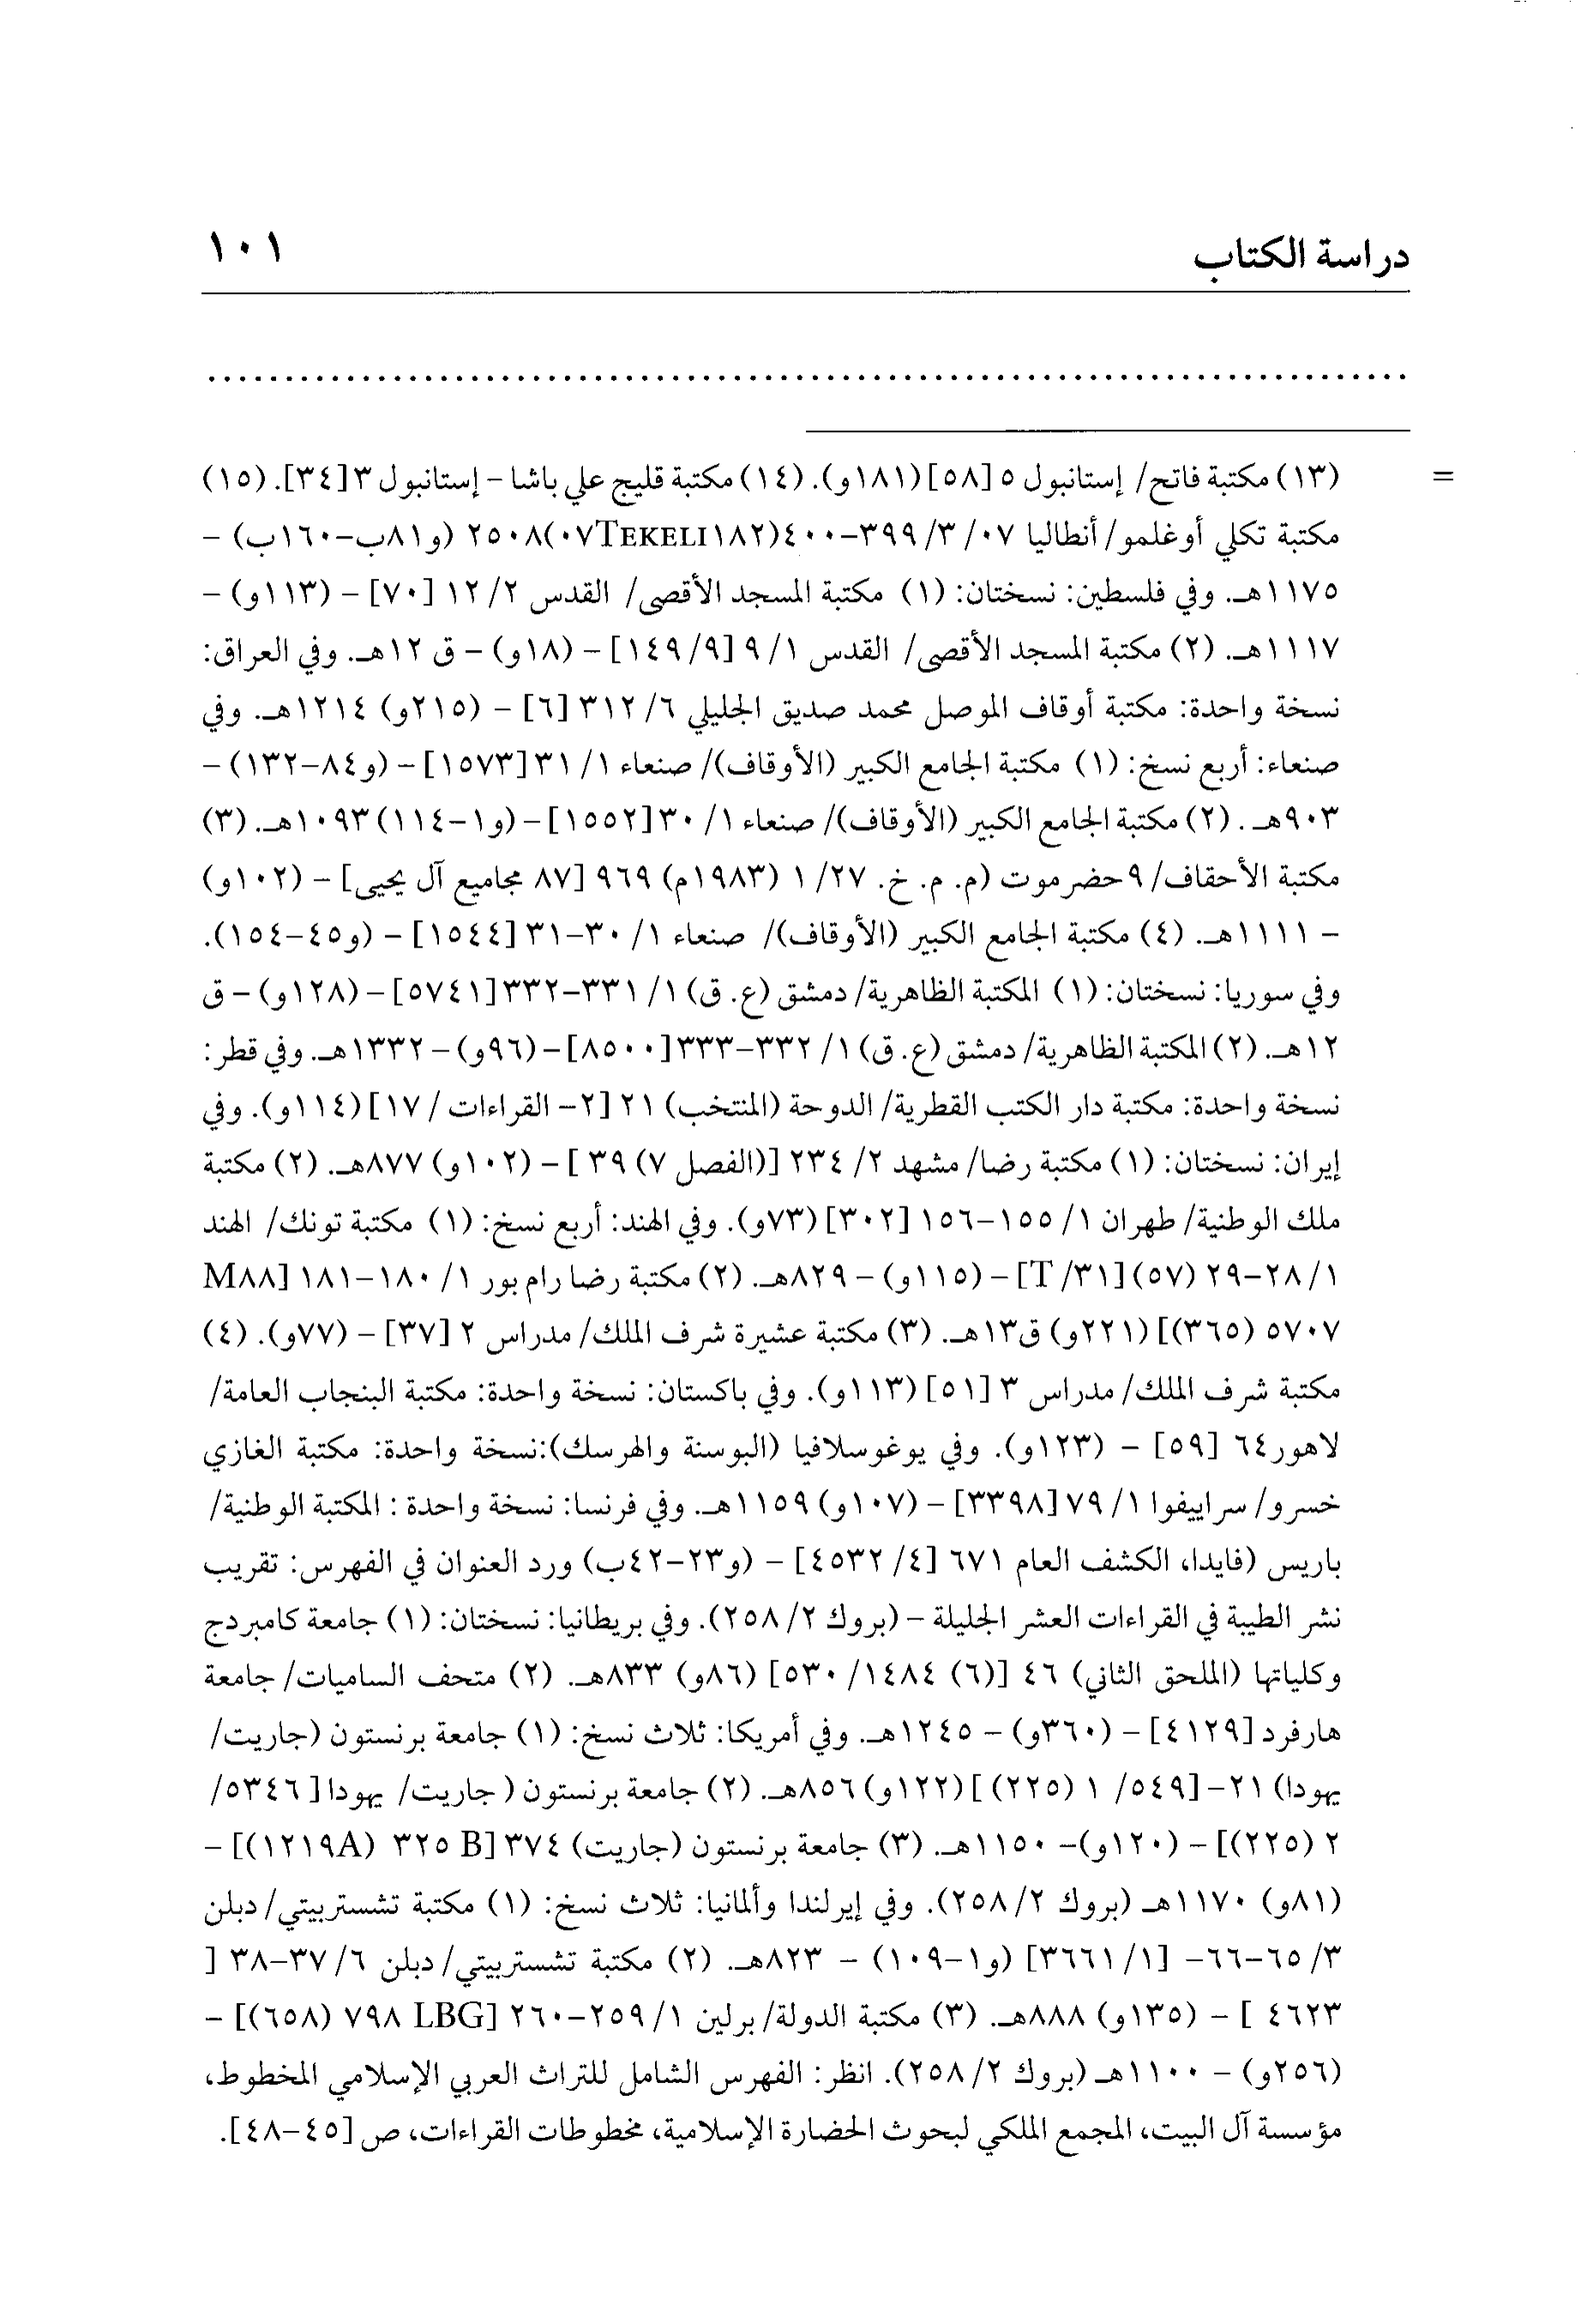 دراسة الكتاب ١٠١
................................................................................
= (١٣) مكتبة فاتح/ إستانبول ٥ [٥٨] (١٨١و). (١٤) مكتبة قليج علي باشا – إستانبول ٣ [٣٤]. (١٥)
مكتبة تكلي أوغلمو/ أنطاليا ٠٧/ ٣/ ٣٩٩–٤٠٠(٠٧TEKELI١٨٢)٢٥٠٨ (و٨١ب–١٦٠ب) –
١١٧٥هـ. وفي فلسطين: نسختان: (١) مكتبة المسجد الأقصى/ القدس ٢/ ١٢ [٧٠] – (١١٣و) –
١١١٧هـ. (٢) مكتبة المسجد الأقصى/ القدس ١/ ٩ [٩/ ١٤٩] – (١٨و) – ق ١٢هـ. وفي العراق:
نسخة واحدة: مكتبة أوقاف الموصل محمد صديق الجليلي ٦/ ٣١٢ [٦] – (٢١٥و) ١٢١٤هـ. وفي
صنعاء: أربع نسخ: (١) مكتبة الجامع الكبير (الأوقاف)/ صنعاء ١/ ٣١ [١٥٧٣] – (و٨٤–١٣٢) –
٩٠٣هـ . (٢) مكتبة الجامع الكبير (الأوقاف)/ صنعاء ١/ ٣٠ [١٥٥٢] – (و١–١١٤) ١٠٩٣هـ. (٣)
مكتبة الأحقاف/ ٩ حضرموت (م. م. خ. ٢٧/ ١ (١٩٨٣م) ٩٦٩ [٨٧ مجاميع آل يحيى] – (١٠٢و)
– ١١١١هـ. (٤) مكتبة الجامع الكبير (الأوقاف)/ صنعاء ١/ ٣٠–٣١ [١٥٤٤] – (و٤٥–١٥٤).
وفي سوريا: نسختان: (١) المكتبة الظاهرية/ دمشق (ع. ق) ١/ ٣٣١–٣٣٢ [٥٧٤١] – (١٢٨و) – ق
١٢هـ. (٢) المكتبة الظاهرية/ دمشق (ع. ق) ١/ ٣٣٢–٣٣٣ [٨٥٠٠] – (٩٦و) – ١٣٣٢هـ. وفي قطر:
نسخة واحدة: مكتبة دار الكتب القطرية/ الدوحة (المنتخب) ٢١ [٢– القراءات / ١٧] (١١٤و). وفي
إيران: نسختان: (١) مكتبة رضا/ مشهد ٢/ ٢٣٤ [(الفصل ٧) ٣٩ ] – (١٠٢و) ٨٧٧هـ. (٢) مكتبة
ملك الوطنية/ طهران ١/ ١٥٥–١٥٦ [٣٠٢] (٧٣و). وفي الهند: أربع نسخ: (١) مكتبة تونك/ الهند
١/ ٢٨–٢٩ (٥٧) [T /٣١] – (١١٥و) – ٨٢٩هـ. (٢) مكتبة رضا رام بور ١/ ١٨٠–١٨١ [M٨٨
٥٧٠٧ (٣٦٥)] (٢٢١و) ق١٣هـ. (٣) مكتبة عشيرة شرف الملك/ مدراس ٢ [٣٧] – (٧٧و). (٤)
مكتبة شرف الملك/ مدراس ٣ [٥١] (١١٣و). وفي باكستان: نسخة واحدة: مكتبة البنجاب العامة/
لاهور٦٤ [٥٩] – (١٢٣و). وفي يوغوسلافيا (البوسنة والهرسك):نسخة واحدة: مكتبة الغازي
خسرو/ سراييفوا ١/ ٧٩ [٣٣٩٨] – (١٠٧و) ١١٥٩هـ. وفي فرنسا: نسخة واحدة : المكتبة الوطنية/
باريس (فايدا، الكشف العام ٦٧١ [٤/ ٤٥٣٢] – (و٢٣–٤٢ب) ورد العنوان في الفهرس: تقريب
نشر الطيبة في القراءات العشر الجليلة – (بروك ٢/ ٢٥٨). وفي بريطانيا: نسختان: (١) جامعة كامبردج
وكلياتها (الملحق الثاني) ٤٦ [(٦) ١٤٨٤/ ٥٣٠] (٨٦و) ٨٣٣هـ. (٢) متحف الساميات/ جامعة
هارفرد [٤١٢٩] – (٣٦٠و) – ١٢٤٥هـ. وفي أمريكا: ثلاث نسخ: (١) جامعة برنستون (جاريت/
يهودا) ٢١– [٥٤٩/ ١ (٢٢٥) ] (١٢٢و) ٨٥٦هـ. (٢) جامعة برنستون ( جاريت/ يهودا [ ٥٣٤٦/
٢ (٢٢٥)] – (١٢٠و)– ١١٥٠هـ. (٣) جامعة برنستون (جاريت) ٣٧٤ [B ٣٢٥ (١٢١٩A)] –
(٨١و) ١١٧٠هـ (بروك ٢/ ٢٥٨). وفي إيرلندا وألمانيا: ثلاث نسخ: (١) مكتبة تشستربيتي/ دبلن
٣/ ٦٥–٦٦– [١/ ٣٦٦١] (و١–١٠٩) – ٨٢٣هـ. (٢) مكتبة تشستربيتي/ دبلن ٦/ ٣٧–٣٨ [
٤٦٢٣ ] – (١٣٥و) ٨٨٨هـ. (٣) مكتبة الدولة/ برلين ١/ ٢٥٩–٢٦٠ [LBG ٧٩٨ (٦٥٨)] –
(٢٥٦و) – ١١٠٠هـ (بروك ٢/ ٢٥٨). انظر: الفهرس الشامل للتراث العربي الإسلامي المخطوط،
مؤسسة آل البيت، المجمع الملكي لبحوث الحضارة الإسلامية، مخطوطات القراءات، ص [٤٥–٤٨].